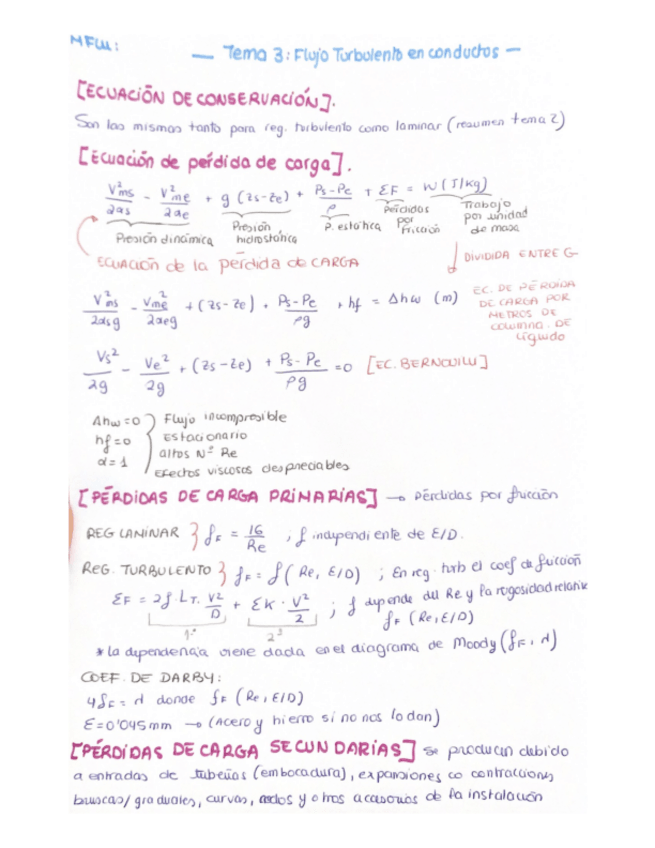 MFLU:
— Tema 3: Flujo Turbulento en conductos —
[ECUACIÓN DE CONSERVACIÓN].
Son las mismas tanto para reg. turbulento como laminar (resumen tema 2)
[Ecuación de pérdida de carga].
V²ms/2αs - V²me/2αe + g (zs-ze) + Ps-Pe/ρ + ΣF = W (J/kg)
Presión dinámica Presión hidrostática P. estática Pérdidas por Fricción Trabajo por unidad de masa
ECUACIÓN de la pérdida de CARGA
DIVIDIDA ENTRE G
V²ms/2αsg - V²me/2αeg + (zs-ze) + Ps-Pe/ρg + hf = Δhw (m)
EC. DE PÉRDIDA
DE CARGA POR
METROS DE
COLUMNA DE
líquido
Vs²/2g - Ve²/2g + (zs-ze) + Ps-Pe/ρg =0 [EC. BERNOUILLI]
Δhw=0 } Flujo incompresible
hf=0 Estacionario
α=1 altos Nº Re
Efectos viscosos despreciables
[PÉRDIDAS DE CARGA PRIMARIAS] → Pérdidas por fricción
REG LAMINAR } fF = 16/Re ; f independiente de E/D.
REG. TURBULENTO } fF = f (Re, E/D) ; En reg. turb el coef de fricción
ΣF = 2f · LT · V²/D + ΣK · V²/2 ; f depende del Re y la rugosidad relativa
1º 2º fF (Re, E/D)
* la dependencia viene dada en el diagrama de Moody (fF, d)
COEF. DE DARBY:
4fF = d donde fF (Re, E/D)
E=0'045mm → (Acero y hierro si no nos lo dan)
[PÉRDIDAS DE CARGA SECUNDARIAS] se producen debido
a entradas de tuberías (embocadura), expansiones o contracciones
bruscas/graduales, curvas, codos y otros accesorios de la instalación